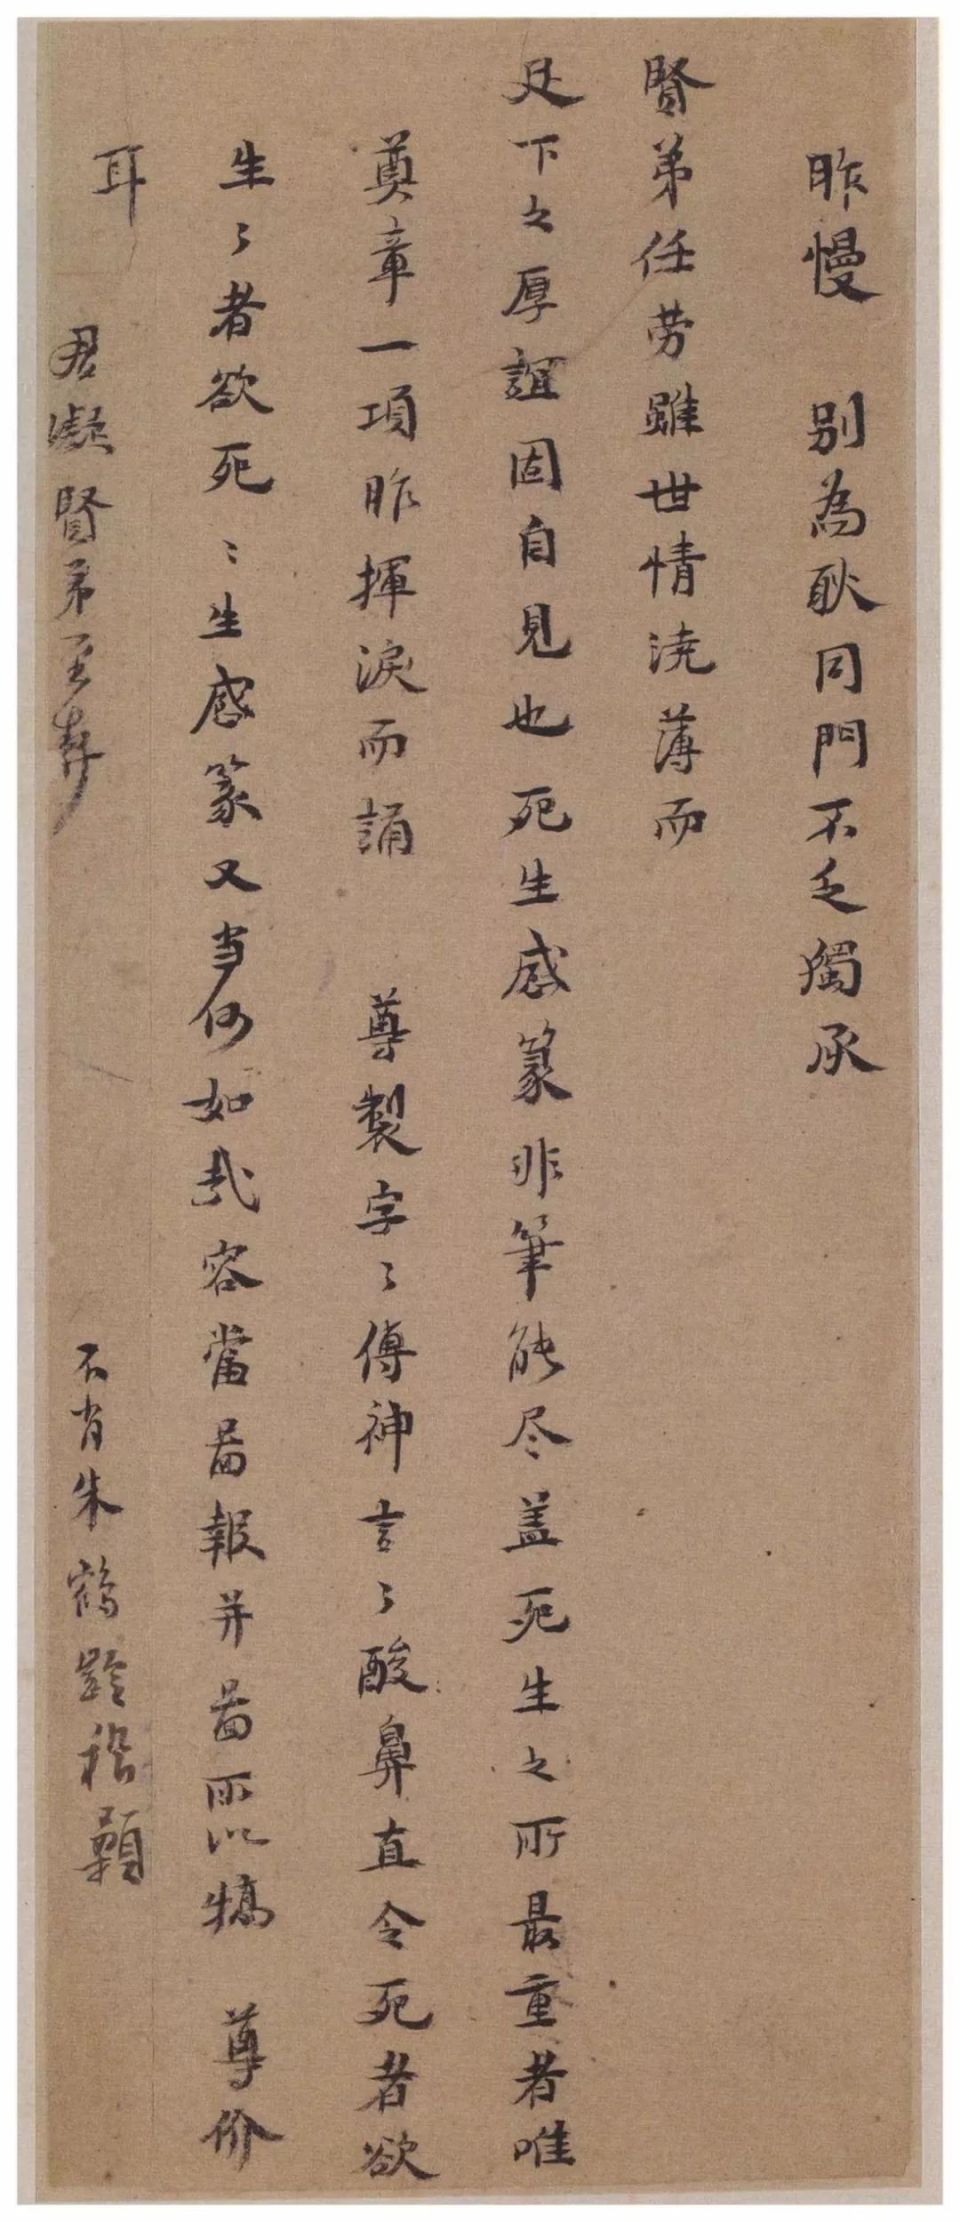 昨慢 别為耿同門不乏獨承
賢弟任劳雖世情澆薄而
足下之厚誼固自見也死生感篆非筆能尽盖死生之所最重者唯
奠章一項昨揮淚而誦 尊製字〻傳神言〻酸鼻直令死者欲
生〻者欲死〻生感篆又当何如哉容當啚報并啚所以犒 尊价
耳
君凝賢弟至弃
不肖朱鶴齡稽顙